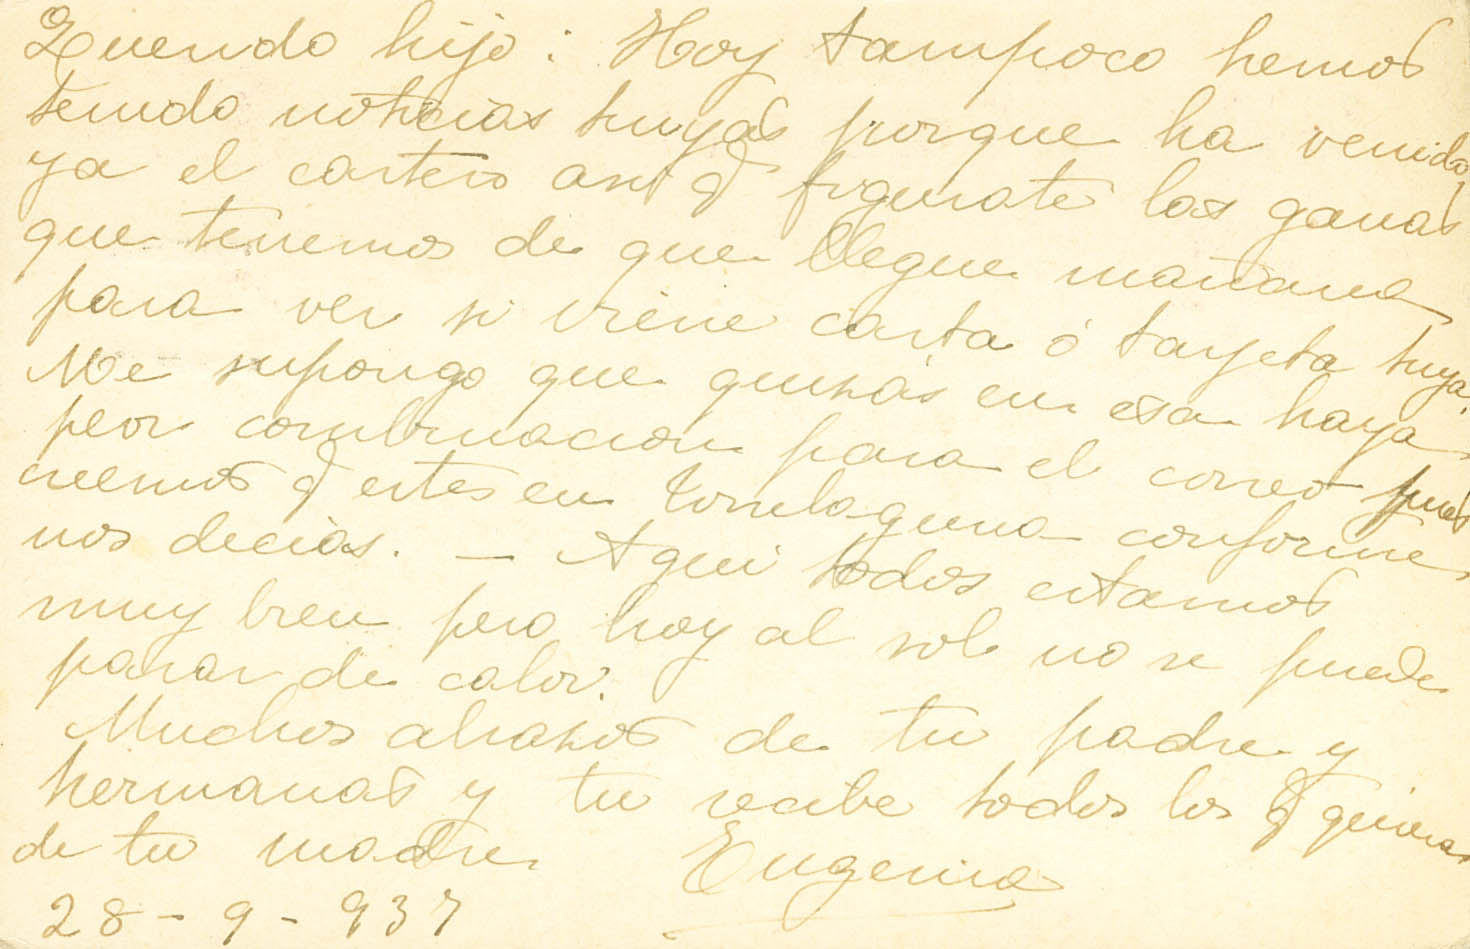 Querido hijo: Hoy tampoco hemos
tenido noticias tuyas porque ha venido
ya el cartero asi q̃ figurate las ganas
que tenemos de que llegue mañana
para ver si viene carta ó tarjeta tuya.
Me supongo que quizás en esa haya
peor combinacion para el correo pues
creemos q̃ estes en Torrelaguna conforme
nos decias. — Aqui todos estamos
muy bien pero hoy al sol no se puede
parar de calor.
Muchos abrazos de tu padre y
hermanas y tu recibe todos los q̃ quieras
de tu madre Eugenia
28 - 9 - 937